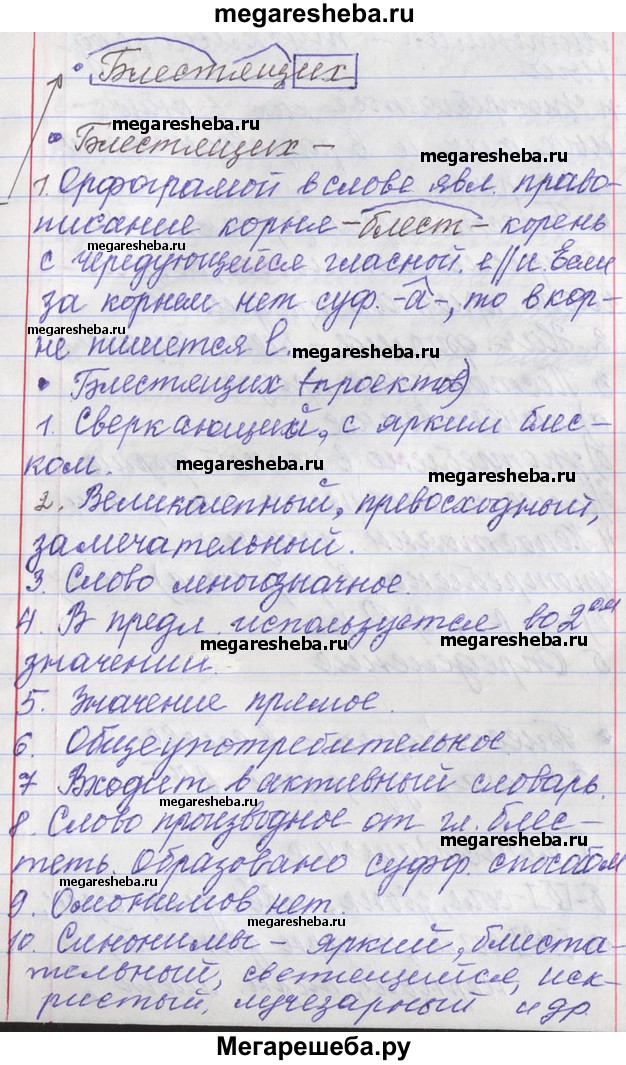 megaresheba.ru
• Блестящих
megaresheba.ru
• Блестящих –
megaresheba.ru
1. Орфограмой в слове явл. право-
писание корня -блест- корень
megaresheba.ru
с чередующейся гласной е//и. Если
за корнем нет суф. -а-, то в кор-
megaresheba.ru
не пишется е.
megaresheba.ru
• Блестящих (проектов)
1. Сверкающий, с ярким блес-
ком.
megaresheba.ru
megaresheba.ru
2. Великолепный, превосходный,
замечательный.
3. Слово многозначное.
4. В предл. используется во 2ом
megaresheba.ru
megaresheba.ru
значении.
5. Значение прямое.
6. Общеупотребительное.
7 Входит в активный словарь.
megaresheba.ru
8. Слово производное от гл. блес-
megaresheba.ru
теть. Образовано суфф. способом
megaresheba.ru
9. Омонимов нет.
megaresheba.ru
10. Синонимы – яркий, блиста-
тельный, светящийся, иск-
ристый, лучезарный и др.
Мегарешеба.ру